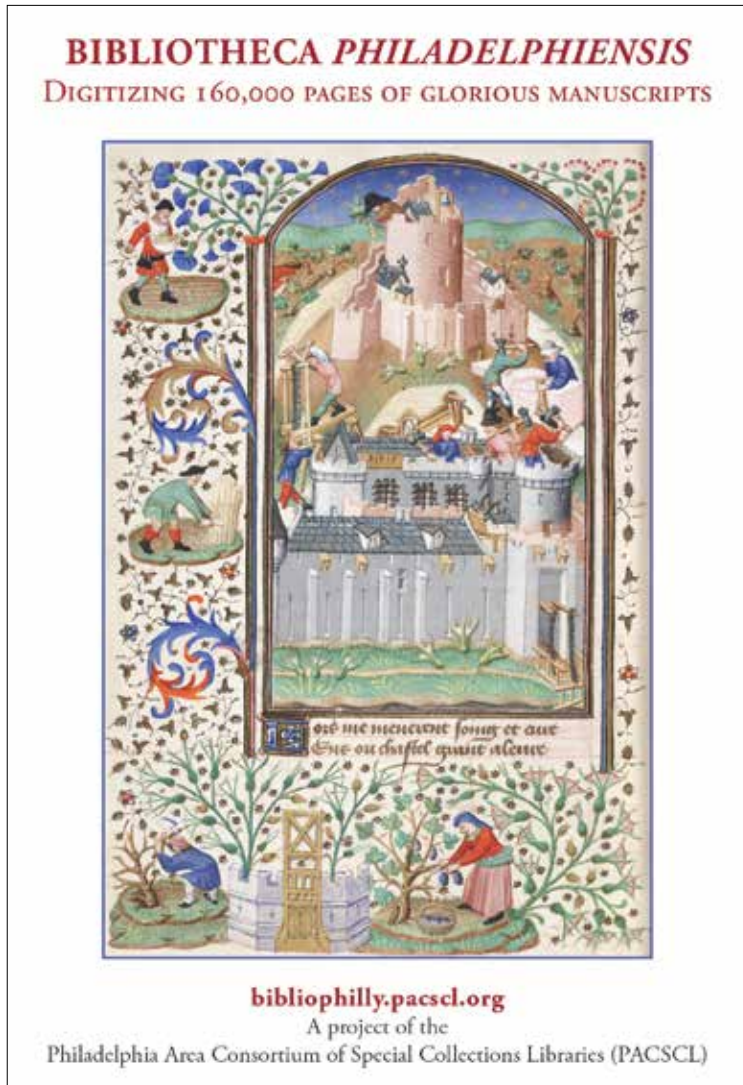 BIBLIOTHECA PHILADELPHIENSIS
DIGITIZING 160,000 PAGES OF GLORIOUS MANUSCRIPTS
ors me menerent soing et
ou chastel quant
bibliophilly.pacscl.org
A project of the
Philadelphia Area Consortium of Special Collections Libraries (PACSCL)